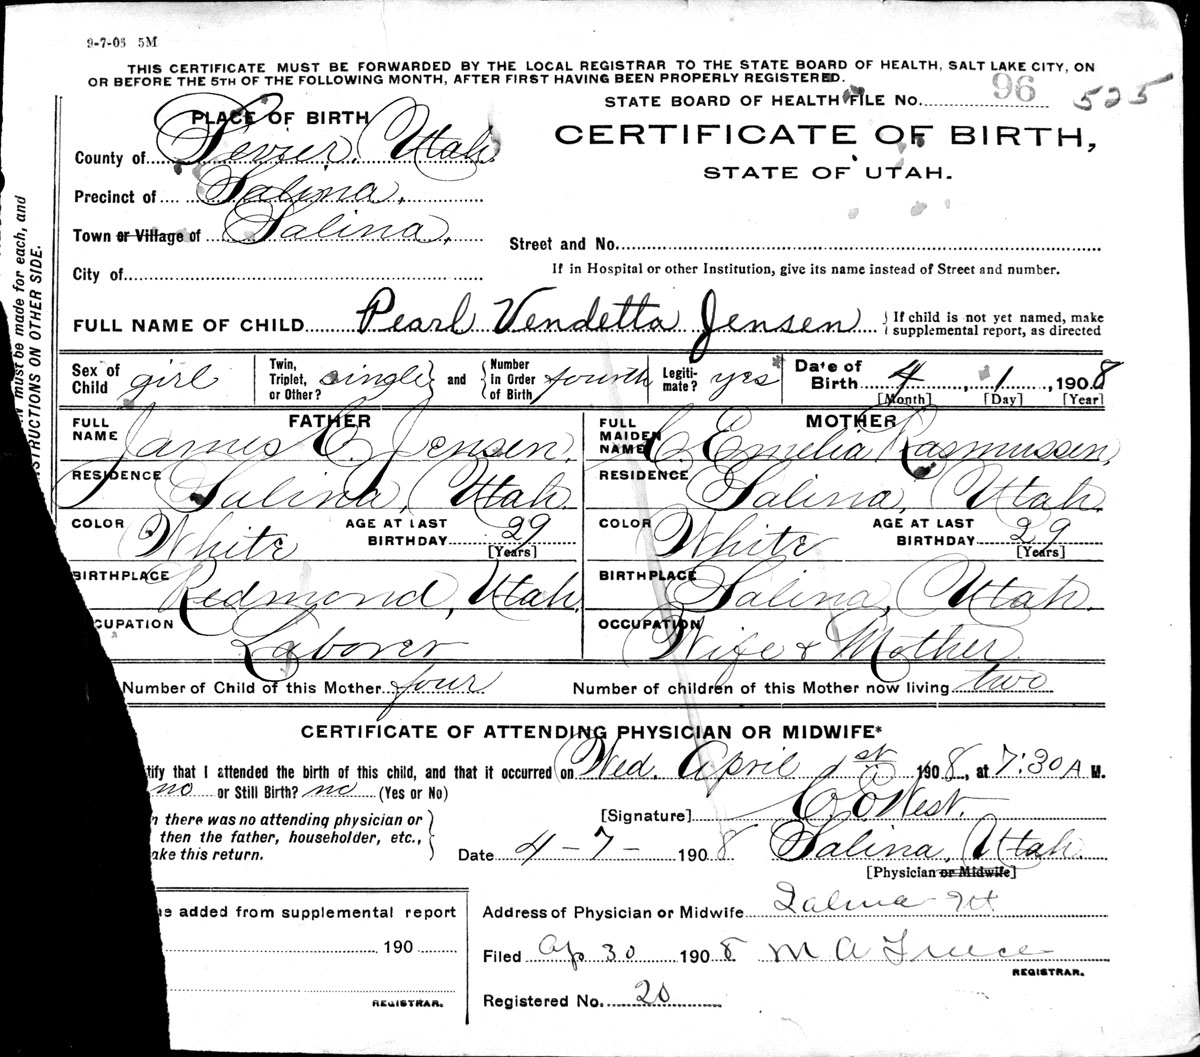 9-7-06 5M
THIS CERTIFICATE MUST BE FORWARDED BY THE LOCAL REGISTRAR TO THE STATE BOARD OF HEALTH, SALT LAKE CITY, ON
OR BEFORE THE 5TH OF THE FOLLOWING MONTH, AFTER FIRST HAVING BEEN PROPERLY REGISTERED.
STATE BOARD OF HEALTH FILE No. 96 525
PLACE OF BIRTH
CERTIFICATE OF BIRTH,
STATE OF UTAH.
County of Sevier, Utah
Precinct of Salina,
Town or Village of Salina,
Street and No.
City of
If in Hospital or other Institution, give its name instead of Street and number.
FULL NAME OF CHILD Pearl Vendetta Jensen { If child is not yet named, make supplemental report, as directed
must be made for each, and
STRUCTIONS ON OTHER SIDE.
Sex of Child girl
Twin, Triplet, or Other? single and Number in Order of Birth fourth
Legitimate? yes
Date of Birth 4, 1, 1908
[Month] [Day] [Year]
FATHER
FULL NAME James C. Jensen,
RESIDENCE Salina, Utah.
COLOR White AGE AT LAST BIRTHDAY 29 [Years]
BIRTHPLACE Redmond, Utah,
CCUPATION Laborer
MOTHER
FULL MAIDEN NAME C Emelia Rasmussen,
RESIDENCE Salina, Utah.
COLOR White AGE AT LAST BIRTHDAY 29 [Years]
BIRTHPLACE Salina, Utah.
OCCUPATION Wife & Mother
Number of Child of this Mother four Number of children of this Mother now living two
CERTIFICATE OF ATTENDING PHYSICIAN OR MIDWIFE*
tify that I attended the birth of this child, and that it occurred on Wed. April 1st 1908, at 7:30 A M.
no or Still Birth? no (Yes or No)
n there was no attending physician or
then the father, householder, etc.,
ake this return.
[Signature] C. O. West.
Date 4-7-1908 Salina, Utah.
[Physician or Midwife]
e added from supplemental report
190
REGISTRAR.
Address of Physician or Midwife Salina Ut
Filed Ap 30 1908 M A
REGISTRAR.
Registered No. 20